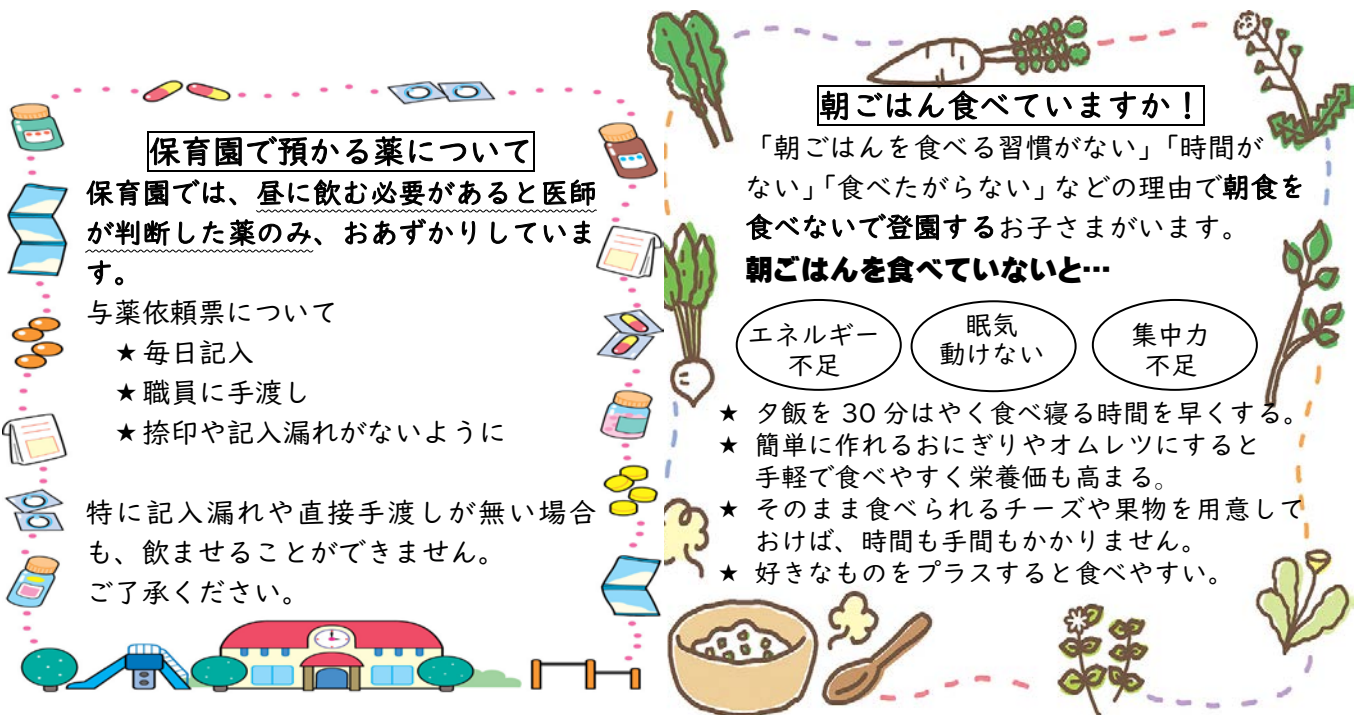 保育園で預かる薬について
保育園では、昼に飲む必要があると医師
が判断した薬のみ、おあずかりしていま
す。
与薬依頼票について
★毎日記入
★職員に手渡し
★捺印や記入漏れがないように
特に記入漏れや直接手渡しが無い場合
も、飲ませることができません。
ご了承ください。
朝ごはん食べていますか！
「朝ごはんを食べる習慣がない」「時間が
ない」「食べたがらない」などの理由で朝食を
食べないで登園するお子さまがいます。
朝ごはんを食べていないと…
エネルギー
不足
眠気
動けない
集中力
不足
★ 夕飯を 30 分はやく食べ寝る時間を早くする。
★ 簡単に作れるおにぎりやオムレツにすると
手軽で食べやすく栄養価も高まる。
★ そのまま食べられるチーズや果物を用意して
おけば、時間も手間もかかりません。
★ 好きなものをプラスすると食べやすい。